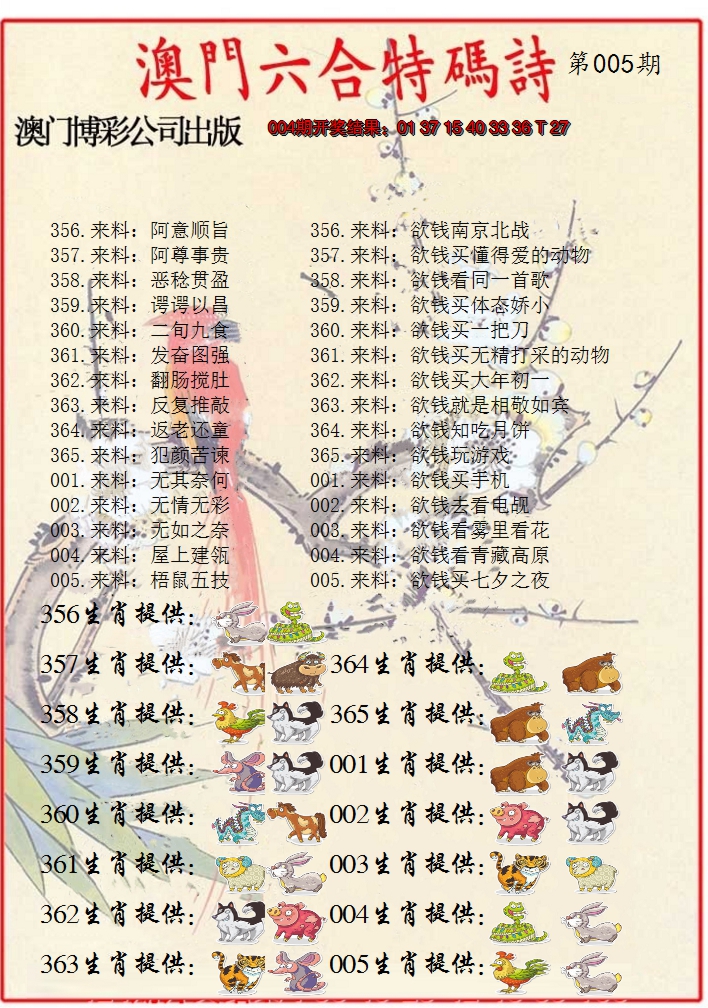 澳門六合特碼詩 第005期
澳门博彩公司出版 004期开奖结果：01 37 15 40 33 36 T 27
356.来料：阿意顺旨 356.来料：欲钱南京北战
357.来料：阿尊事贵 357.来料：欲钱买懂得爱的动物
358.来料：恶稔贯盈 358.来料：欲钱看同一首歌
359.来料：谔谔以昌 359.来料：欲钱买体态娇小
360.来料：二旬九食 360.来料：欲钱买一把刀
361.来料：发奋图强 361.来料：欲钱买无精打采的动物
362.来料：翻肠搅肚 362.来料：欲钱买大年初一
363.来料：反复推敲 363.来料：欲钱就是相敬如宾
364.来料：返老还童 364.来料：欲钱知吃月饼
365.来料：犯颜苦谏 365.来料：欲钱玩游戏
001.来料：无其奈何 001.来料：欲钱买手机
002.来料：无情无彩 002.来料：欲钱去看电觇
003.来料：无如之奈 003.来料：欲钱看雾里看花
004.来料：屋上建瓴 004.来料：欲钱看青藏高原
005.来料：梧鼠五技 005.来料：欲钱买七夕之夜
356生肖提供：
357生肖提供： 364生肖提供：
358生肖提供： 365生肖提供：
359生肖提供： 001生肖提供：
360生肖提供： 002生肖提供：
361生肖提供： 003生肖提供：
362生肖提供： 004生肖提供：
363生肖提供： 005生肖提供：